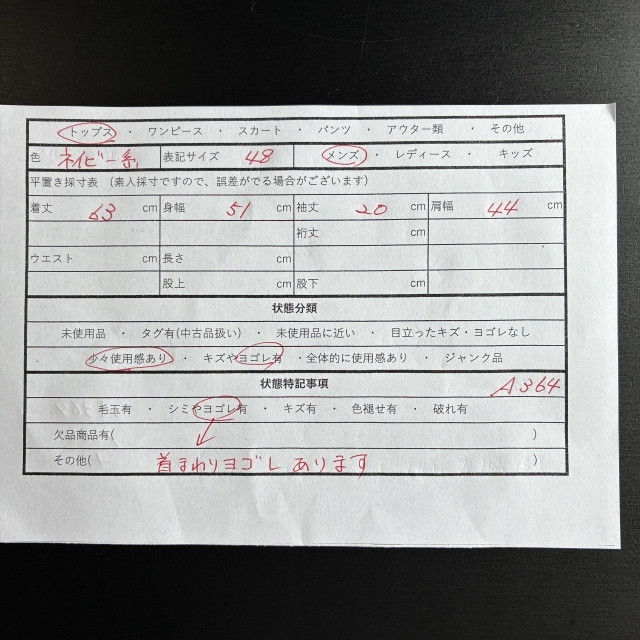 トップス ・ ワンピース ・ スカート ・ パンツ ・ アウター類 ・ その他
色 ネイビー系 表記サイズ 48 メンズ ・ レディース ・ キッズ
平置き採寸表 (素人採寸ですので、誤差がでる場合がございます)
着丈 63 cm 身幅 51 cm 袖丈 20 cm 肩幅 44 cm
裄丈 cm
ウエスト cm 長さ cm
股上 cm 股下 cm
状態分類
未使用品 ・ タグ有(中古品扱い) ・ 未使用品に近い ・ 目立ったキズ・ヨゴレなし
少々使用感あり ・ キズやヨゴレ有 ・全体的に使用感あり ・ ジャンク品
状態特記事項 A364
毛玉有 ・ シミやヨゴレ有 ・ キズ有 ・ 色褪せ有 ・ 破れ有
欠品商品有( )
その他( 首まわりヨゴレ あります )